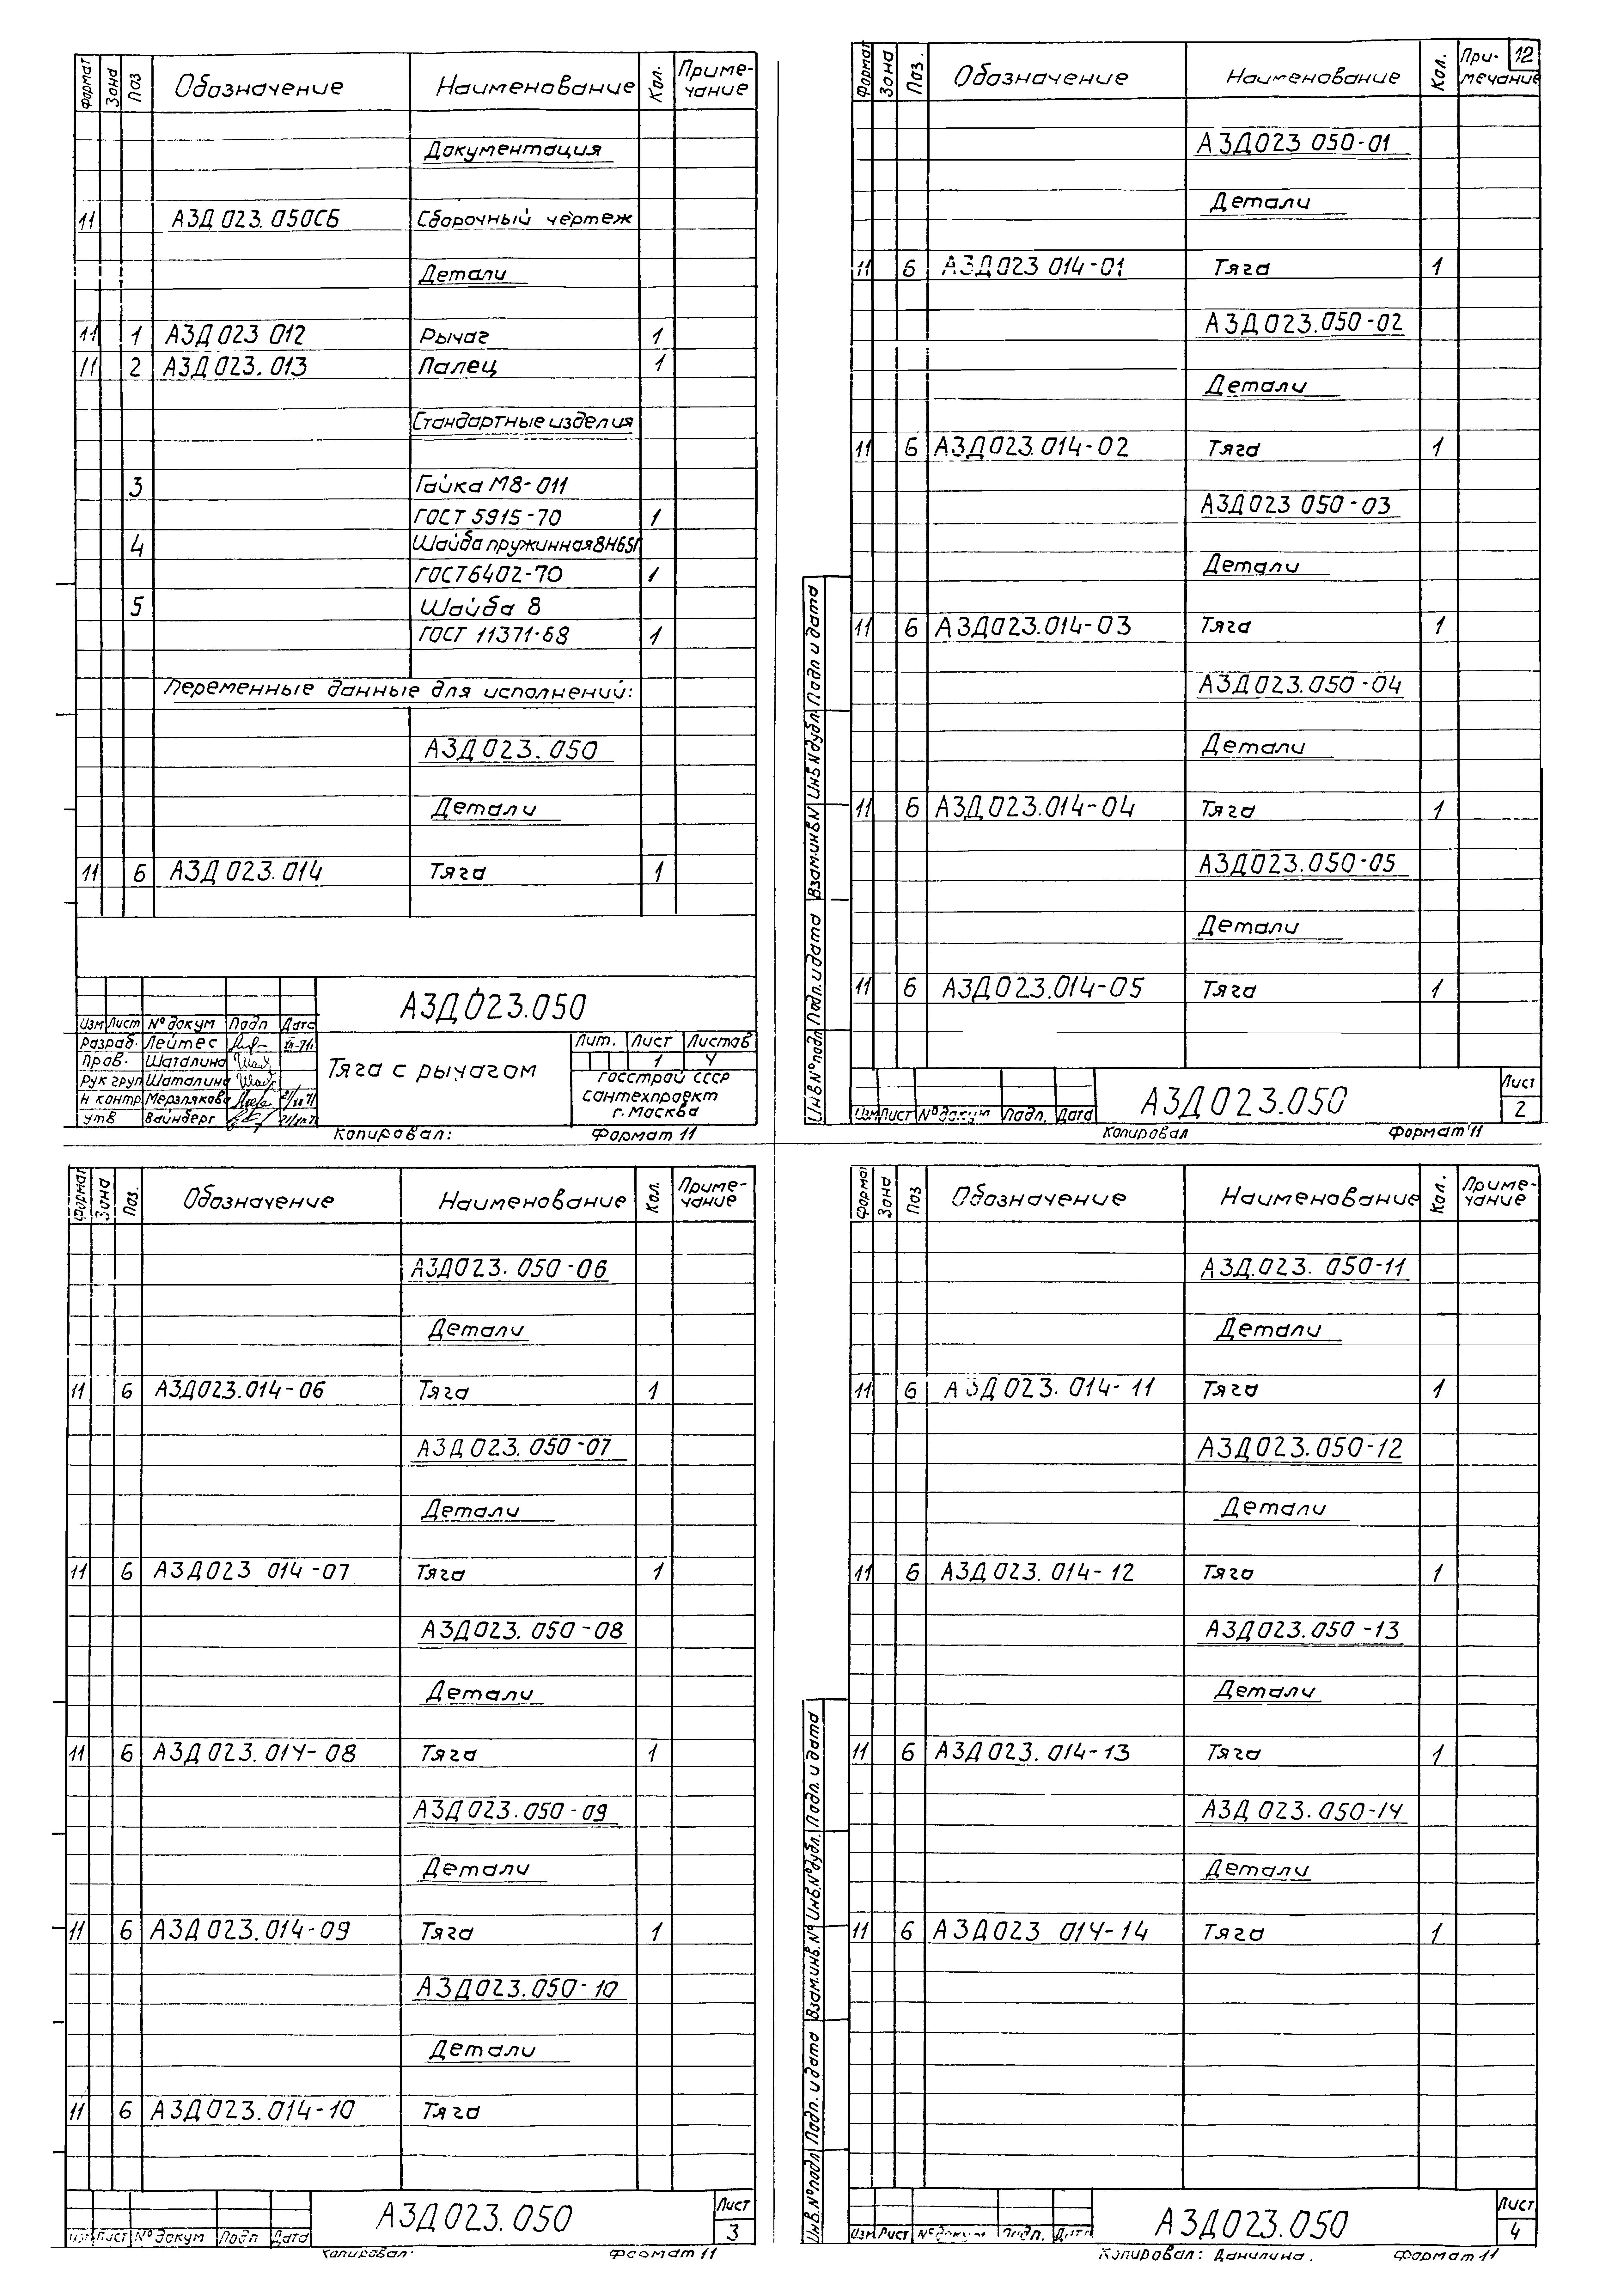 Формат Зона Поз Обозначение Наименование Кол. Приме-
чание
Документация
11 АЗД 023.050СБ Сборочный чертеж
Детали
11 1 АЗД 023 012 Рычаг 1
11 2 АЗД 023.013 Палец 1
Стандартные изделия
3 Гайка М8-011
ГОСТ 5915-70 1
4 Шайба пружинная 8Н65Г
ГОСТ 6402-70 1
5 Шайба 8
ГОСТ 11371-68 1
Переменные данные для исполнений:
АЗД 023.050
Детали
11 6 АЗД 023.014 Тяга 1
АЗД 023.050
Изм Лист № докум Подп Дата
Разраб. Лейтес
Пров. Шаталина
Рук груп Шаталина
Н контр. Мерзлякова
Утв Вайнберг
Тяга с рычагом
Лит. Лист Листов
1 4
Госстрой СССР
Сантехпроект
г. Москва
Копировал: Формат 11
12
Формат Зона Поз. Обозначение Наименование Кол. При-
мечание
АЗД023 050-01
Детали
11 6 АЗД023 014-01 Тяга 1
АЗД023.050-02
Детали
11 6 АЗД023.014-02 Тяга 1
АЗД023 050-03
Детали
11 6 АЗД023.014-03 Тяга 1
АЗД023.050-04
Детали
11 6 АЗД023.014-04 Тяга 1
АЗД023.050-05
Детали
11 6 АЗД023.014-05 Тяга 1
Подп и дата
Инв N дубл.
Взам.инв N
Подп. и дата
Инв № подл
Изм Лист № докум Подп. Дата
АЗД023.050
Лист
2
Копировал Формат 11
Формат Зона Поз. Обозначение Наименование Кол. Приме-
чание
АЗД023.050-06
Детали
11 6 АЗД023.014-06 Тяга 1
АЗД023.050-07
Детали
11 6 АЗД023 014-07 Тяга 1
АЗД023.050-08
Детали
11 6 АЗД023.014-08 Тяга 1
АЗД023.050-09
Детали
11 6 АЗД023.014-09 Тяга 1
АЗД023.050-10
Детали
11 6 АЗД023.014-10 Тяга
Изм Лист № докум Подп Дата
АЗД023.050
Лист
3
Копировал: Формат 11
Формат Зона Поз Обозначение Наименование Кол. Приме-
чание
АЗД.023.050-11
Детали
11 6 АЗД023.014-11 Тяга 1
АЗД023.050-12
Детали
11 6 АЗД023.014-12 Тяга 1
АЗД023.050-13
Детали
11 6 АЗД023.014-13 Тяга 1
АЗД023.050-14
Детали
11 6 АЗД023 014-14 Тяга 1
Подп. и дата
Инв.№дубл.
Взам.инв.№
Подп. и дата
Инв.№подл
Изм Лист № докум Подп. Дата
АЗД023.050
Лист
4
Копировал: Данилина. Формат 11